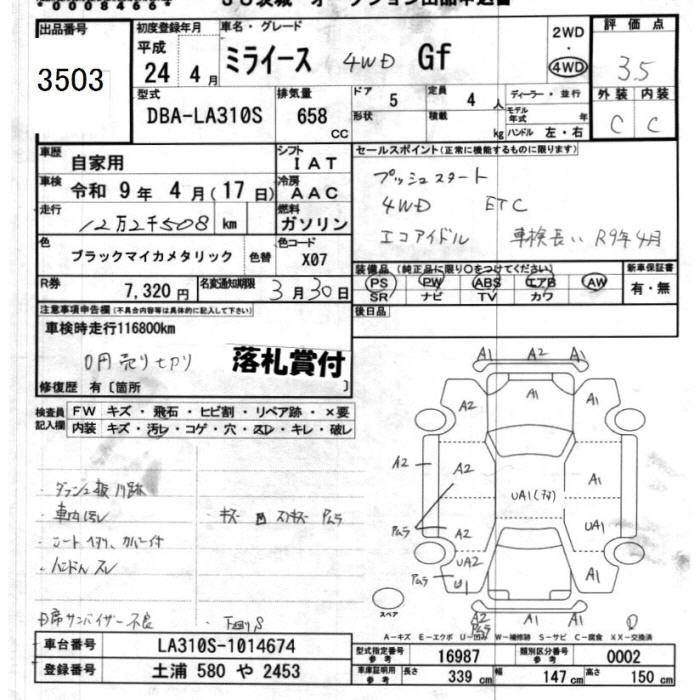 出品番号
3503
初度登録年月
平成
24 4月
車名・グレード
ミライース 4WD Gf
2WD
・
4WD
評価点
3.5
型式
DBA-LA310S
排気量
658
CC
ドア 5
形状
定員 4 人
積載 kg
ディーラー・並行
モデル年式 年
ハンドル 左・右
外装 内装
C C
車歴 自家用
シフト
IAT
車検 令和 9年 4月(17日)
冷房
AAC
走行 12万2千508 km
燃料
ガソリン
色 ブラックマイカメタリック 色替
色コード
X07
R券 7,320円
名変通知期限 3月30日
セールスポイント(正常に機能するものに限ります)
プッシュスタート
4WD ETC
エコアイドル 車検長い R9年4月
装備品(純正品に限り〇をつけてください)
PS PW ABS エアB AW
SR ナビ TV カワ
新車保証書
有・無
後日品
注意事項申告欄(不具合内容等は具体的に記入して下さい)
車検時走行116800km
0円売り切り
落札賞付
修復歴 有〔箇所 〕
検査員記入欄
FW キズ・飛石・ヒビ割・リペア跡・×要
内装 キズ・汚レ・コゲ・穴・スレ・キレ・破レ
A1 A2 A1
A2 A1 A1
A2 A2 A1
UA1
A2 UA1
UA2
U1 A1
A2 A1
・車内汚レ
・ハンドルスレ
スペア
A-キズ E-エクボ U-凹み W-補修跡 S-サビ C-腐食 XX-交換済
車台番号 LA310S-1014674
登録番号 土浦 580 や 2453
型式指定番号
参考 16987
類別区分番号
参考 0002
車庫証明用
参考 長さ 339 cm 幅 147 cm 高さ 150 cm